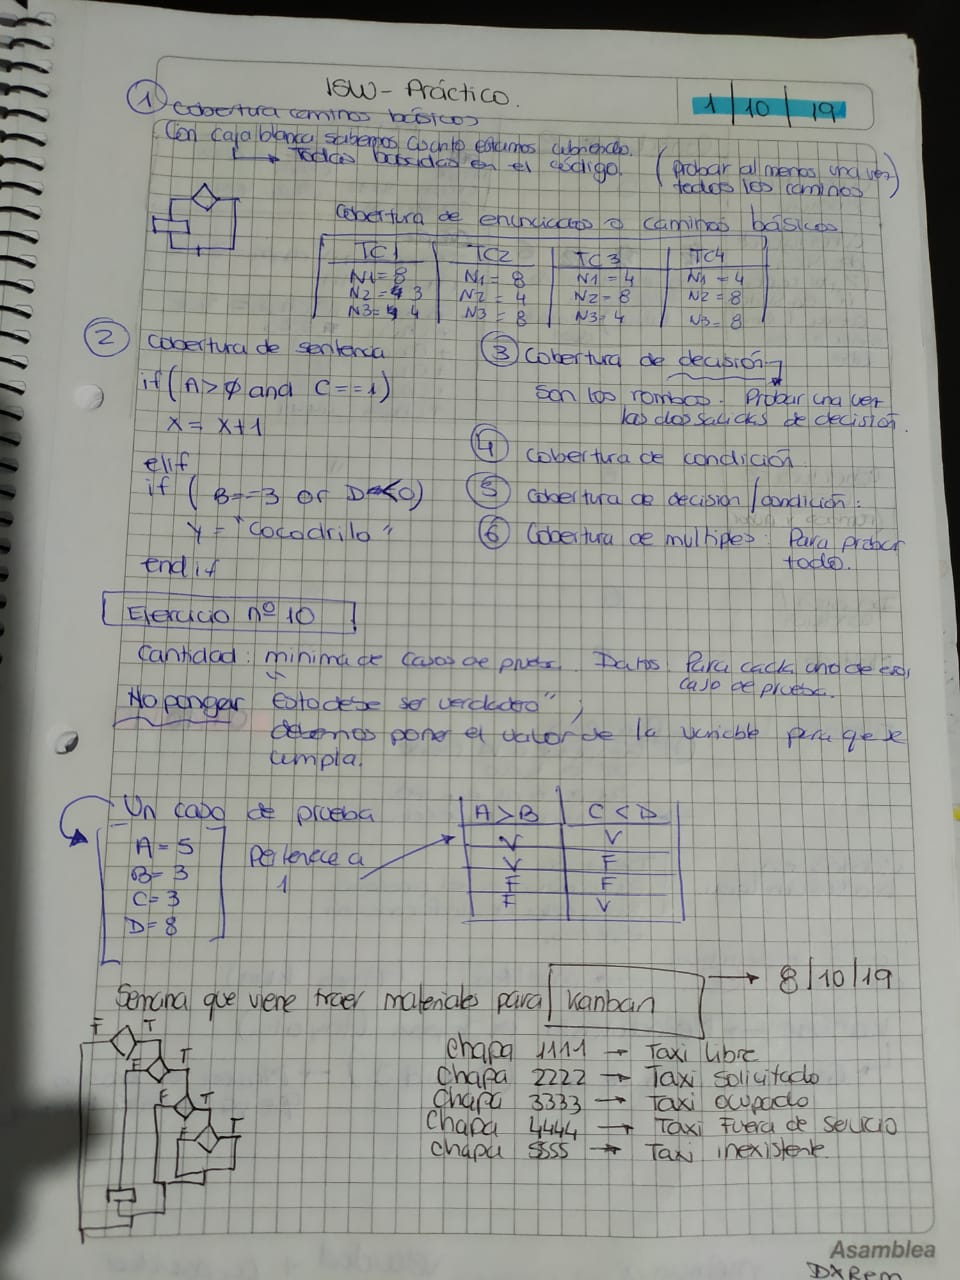 ISW - Práctico.
1/10/19
① Cobertura caminos básicos
Con caja blanca sabemos cuanto estamos cubriendo.
→ Todas basadas en el código.
(Probar al menos una vez
todos los caminos)
Cobertura de enunciados o caminos básicos
TC1 TC2 TC3 TC4
N1=8 N1=8 N1=4 N1=4
N2= 3 N2=4 N2=8 N2=8
N3= 4 N3=8 N3=4 N3=8
② Cobertura de sentencia
if (A>0 and C==1)
X= X+1
elif
if ( B==3 or D<0)
Y= "Cocodrilo"
end if
③ Cobertura de decisión
Son los rombos. Probar una vez
las dos salidas de decisión.
④ Cobertura de condición
⑤ Cobertura de decision/condición:
⑥ Cobertura de multiples: Para probar
todo.
Ejercicio nº 10
Cantidad: minima de casos de prueba. Datos Para cada uno de esos
caso de prueba.
No pongar "esto debe ser verdadero";
debemos poner el valor de la variable para que se
cumpla.
Un caso de prueba
A=5
B=3
C=3
D=8
Pertenece a
1
A>B C<D
V V
V F
F F
F V
Semana que viene traer materiales para kanban → 8/10/19
F T
F T
F T
F T
Chapa 1111 → Taxi Libre
Chapa 2222 → Taxi solicitado
Chapa 3333 → Taxi ocupado
Chapa 4444 → Taxi Fuera de Servicio
Chapa 5555 → Taxi inexistente.
Asamblea